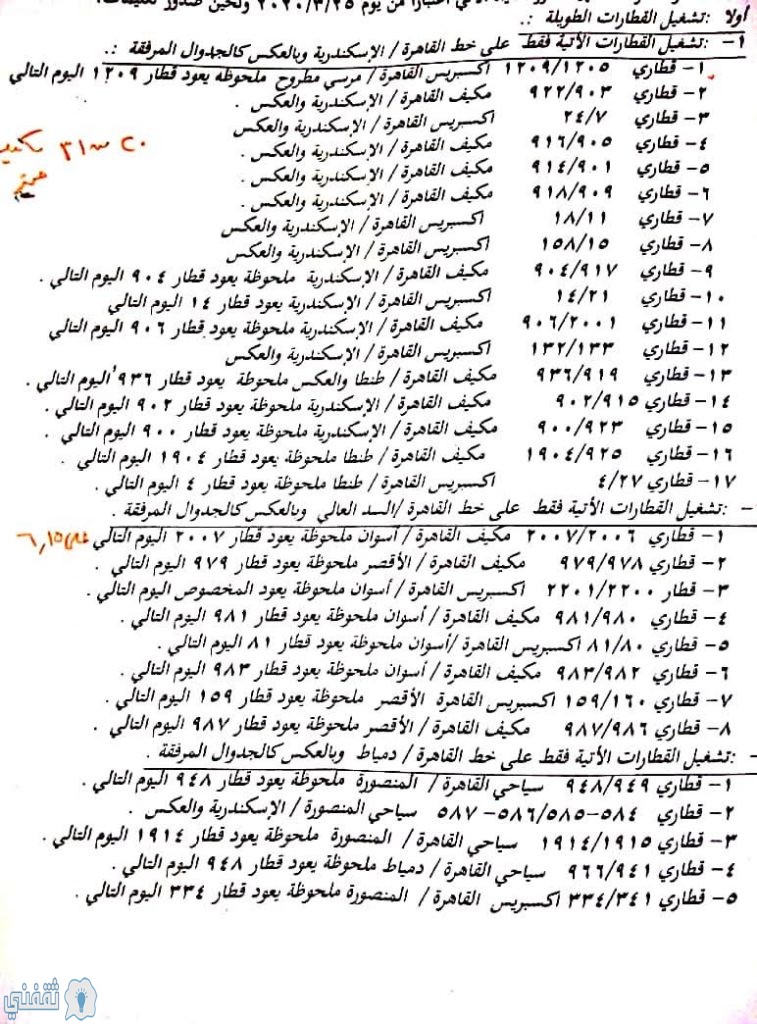 اعتبارا من يوم ٢٠٢٠/٣/٢٥ ولحين صدور تعليمات.
أولا :تشغيل القطارات الطويلة :.
١- :تشغيل القطارات الأتية فقط على خط القاهرة / الإسكندرية وبالعكس كالجدوال المرفقة .:
١- قطاري ١٢٠٩/١٢٠٥ اكسبريس القاهرة / مرسي مطروح ملحوظه يعود قطار ١٢٠٩ اليوم التالي
٢- قطاري ٩٢٢/٩٠٣ مكيف القاهرة / الإسكندرية والعكس .
٣- قطاري ٢٤/٧ اكسبريس القاهرة / الإسكندرية والعكس
٤- قطاري ٩١٦/٩٠٥ مكيف القاهرة / الإسكندرية والعكس .
٥- قطاري ٩١٤/٩٠١ مكيف القاهرة / الإسكندرية والعكس .
٦- قطاري ٩١٨/٩٠٩ مكيف القاهرة / الإسكندرية والعكس .
٧- قطاري ١٨/١١ اكسبريس القاهرة / الإسكندرية والعكس
٨- قطاري ١٥٨/١٥ اكسبريس القاهرة / الإسكندرية والعكس
٩- قطاري ٩٠٤/٩١٧ مكيف القاهرة / الإسكندرية ملحوظة يعود قطار ٩٠٤ اليوم التالي .
١٠- قطاري ١٤/٢١ اكسبريس القاهرة / الإسكندرية يعود قطار ١٤ اليوم التالي
١١- قطاري ٩٠٦/٢٠٠١ مكيف القاهرة / الإسكندرية ملحوظة يعود قطار ٩٠٦ اليوم التالي
١٢- قطاري ١٣٢/١٣٣ اكسبريس القاهرة / الإسكندرية والعكس
١٣- قطاري ٩٣٦/٩١٩ مكيف القاهرة / طنطا والعكس ملحوظة يعود قطار ٩٣٦ اليوم التالي .
١٤- قطاري ٩٠٢/٩١٥ مكيف القاهرة / الإسكندرية ملحوظة يعود قطار ٩٠٢ اليوم التالي .
١٥- قطاري ٩٠٠/٩٢٣ مكيف القاهرة / الإسكندرية ملحوظة يعود قطار ٩٠٠ اليوم التالي .
١٦- قطاري ١٩٠٤/٩٢٥ مكيف القاهرة / طنطا ملحوظة يعود قطار ١٩٠٤ اليوم التالي .
١٧- قطاري ٤/٢٧ اكسبريس القاهرة / طنطا ملحوظة يعود قطار ٤ اليوم التالي .
- :تشغيل القطارات الأتية فقط على خط القاهرة /السد العالي وبالعكس كالجدوال المرفقة .
١- قطاري ٢٠٠٧/٢٠٠٦ مكيف القاهرة / أسوان ملحوظة يعود قطار ٢٠٠٧ اليوم التالي
٢- قطاري ٩٧٩/٩٧٨ مكيف القاهرة / الأقصر ملحوظة يعود قطار ٩٧٩ اليوم التالي .
٣- قطار ٢٢٠١/٢٢٠٠ اكسبريس القاهرة / أسوان ملحوظة يعود المخصوص اليوم التالي .
٤- قطاري ٩٨١/٩٨٠ مكيف القاهرة / أسوان ملحوظة يعود قطار ٩٨١ اليوم التالي .
٥- قطاري ٨١/٨٠ اكسبريس القاهرة /أسوان ملحوظة يعود قطار ٨١ اليوم التالي .
٦- قطاري ٩٨٣/٩٨٢ مكيف القاهرة / أسوان ملحوظة يعود قطار ٩٨٣ اليوم التالي .
٧- قطاري ١٥٩/١٦٠ اكسبريس القاهرة الأقصر ملحوظة يعود قطار ١٥٩ اليوم التالي .
٨- قطاري ٩٨٧/٩٨٦ مكيف القاهرة / الأقصر ملحوظة يعود قطار ٩٨٧ اليوم التالي .
- :تشغيل القطارات الأتية فقط على خط القاهرة / دمياط وبالعكس كالجدوال المرفقة .
١- قطاري ٩٤٨/٩٤٩ سياحي القاهرة / المنصورة ملحوظة يعود قطار ٩٤٨ اليوم التالي .
٢- قطاري ٥٨٤-٥٨٦/٥٨٥- ٥٨٧ سياحي المنصورة / الإسكندرية والعكس .
٣- قطاري ١٩١٤/١٩١٥ سياحي القاهرة / المنصورة ملحوظة يعود قطار ١٩١٤ اليوم التالي .
٤- قطاري ٩٦٦/٩٤١ سياحي القاهرة / دمياط ملحوظة يعود قطار ٩٤٨ اليوم التالي .
٥- قطاري ٣٣٤/٣٤١ اكسبريس القاهرة / المنصورة ملحوظة يعود قطار ٣٣٤ اليوم التالي .
ثقفني